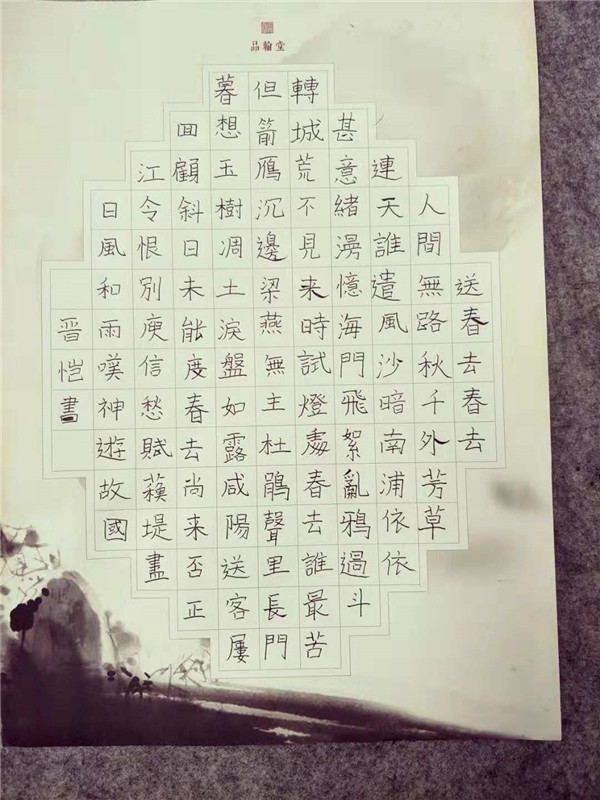 品翰堂
送春去春去
人間無路秋千外芳草
連天誰遣風沙暗南浦依依
甚意緒漫憶海門飛絮亂鴉過斗
轉城荒不見来時試燈處春去誰最苦
但箭鴈沉邊梁燕無主杜鵑聲里長門
暮想玉樹凋土淚盤如露咸陽送客屢
囬顧斜日未能度春去尚来否正
江令恨別庾信愁賦蘓堤盡
日風和雨嘆神遊故國
晋恺書